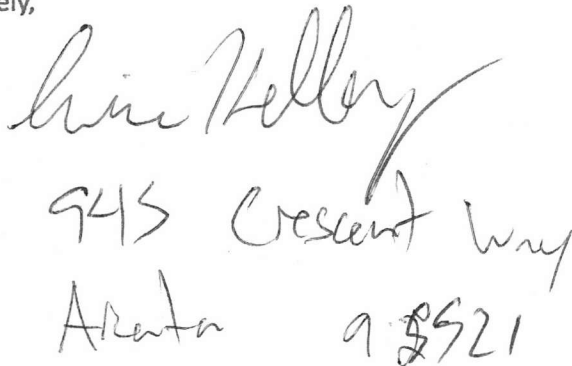 ely,
Kelley
945 Crescent Way
Arcata 95521